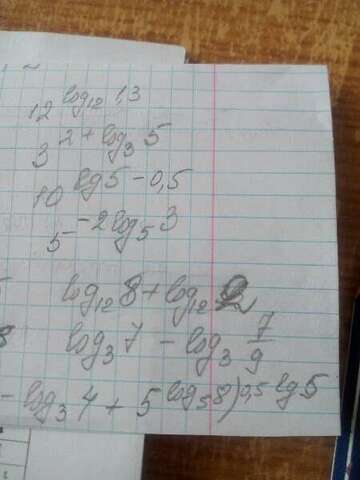 12^{log_{12} 1,3}
3^{2+log_3 5}
10^{lg5-0,5}
5^{-2log_5 3}
log_{12} 8 + log_{12}
log_3 7 - log_3 \frac{7}{9}
- log_3 4 + 5^{log_5 8)^{0,5 lg5}